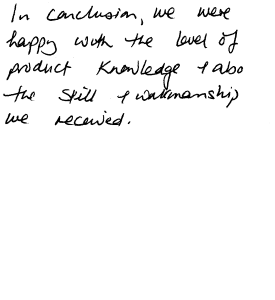 In conclusion, we were
happy with the level of
product knowledge & also
the skill & workmanship
we received.